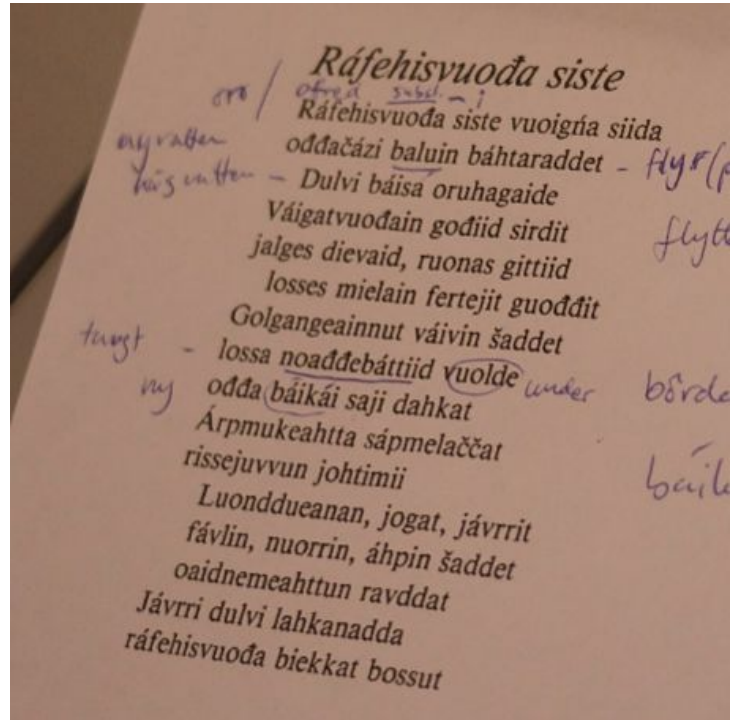 Ráfehisvuođa siste
oro / ofred subst. - i
Ráfehisvuođa siste vuoigŋa siida
nyvatten ođđačázi baluin báhtaraddet - flyr
högvatten - Dulvi báisá oruhagaide
Váigatvuođain gođiid sirdit flytt
jalges dievaid, ruonas gittiid
losses mielain fertejit guođđit
Golgangeainnut váivin šaddet
tungt - lossa noađđebáttiid vuolde under börda
ny ođđa báikái saji dahkat
Árpmukeahtta sápmelaččat
rissejuvvun johtimii báik
Luonddueanan, jogat, jávrrit
fávlin, nuorrin, áhpin šaddet
oaidnemeahttun ravddat
Jávrri dulvi lahkanadda
ráfehisvuođa biekkat bossut